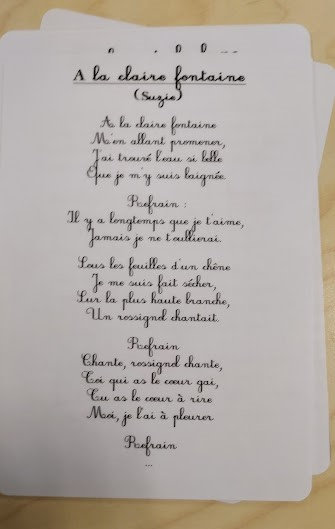 A la claire fontaine
(Suzie)
A la claire fontaine
M'en allant promener,
J'ai trouvé l'eau si belle
Que je m'y suis baignée.
Refrain :
Il y a longtemps que je t'aime,
Jamais je ne t'oublierai.
Sous les feuilles d'un chêne
Je me suis fait sécher,
Sur la plus haute branche,
Un rossignol chantait.
Refrain
Chante, rossignol chante,
Toi qui as le cœur gai,
Tu as le cœur à rire
Moi, je l'ai à pleurer
Refrain
...